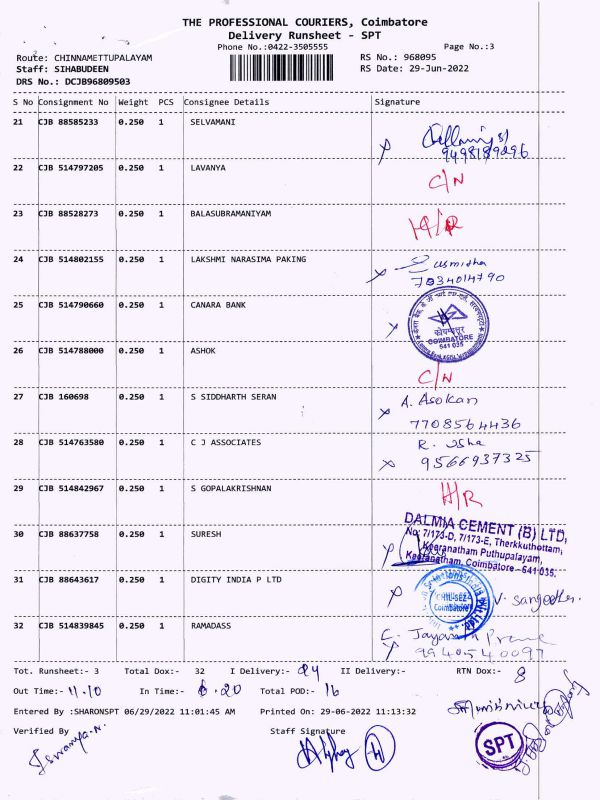 THE PROFESSIONAL COURIERS, Coimbatore
Delivery Runsheet - SPT
Phone No.:0422-3505555
Page No.:3
Route: CHINNAMETTUPALAYAM
RS No.: 968095
Staff: SIHABUDEEN
RS Date: 29-Jun-2022
DRS No.: DCJB96809503
S No Consignment No Weight PCS Consignee Details Signature
21 CJB 88585233 0.250 1 SELVAMANI
9498189296
22 CJB 514797205 0.250 1 LAVANYA C/N
23 CJB 88528273 0.250 1 BALASUBRAMANIYAM H/R
24 CJB 514802155 0.250 1 LAKSHMI NARASIMA PAKING Susmitha
7034014790
25 CJB 514790660 0.250 1 CANARA BANK
कोयम्बत्तूर
COIMBATORE
641 035
26 CJB 514788000 0.250 1 ASHOK C/N
27 CJB 160698 0.250 1 S SIDDHARTH SERAN A. Asokan
7708564436
28 CJB 514763580 0.250 1 C J ASSOCIATES R. Usha
9566937325
29 CJB 514842967 0.250 1 S GOPALAKRISHNAN H/R
DALMIA CEMENT (B) LTD,
No: 7/173-D, 7/173-E, Therkkuthottam,
30 CJB 88637758 0.250 1 SURESH
Keeranatham Puthupalayam,
Keeranatham, Coimbatore - 641 035.
31 CJB 88643617 0.250 1 DIGITY INDIA P LTD
CHIL-SEZ
Coimbatore
V. Sangeetha.
32 CJB 514839845 0.250 1 RAMADASS
9940540097
Tot. Runsheet:- 3 Total Dox:- 32 I Delivery:- 24 II Delivery:- RTN Dox:- 8
Out Time:- 11.10 In Time:- 6.20 Total POD:- 16
Entered By :SHARONSPT 06/29/2022 11:01:45 AM Printed On: 29-06-2022 11:13:32
Verified By Staff Signature
SPT